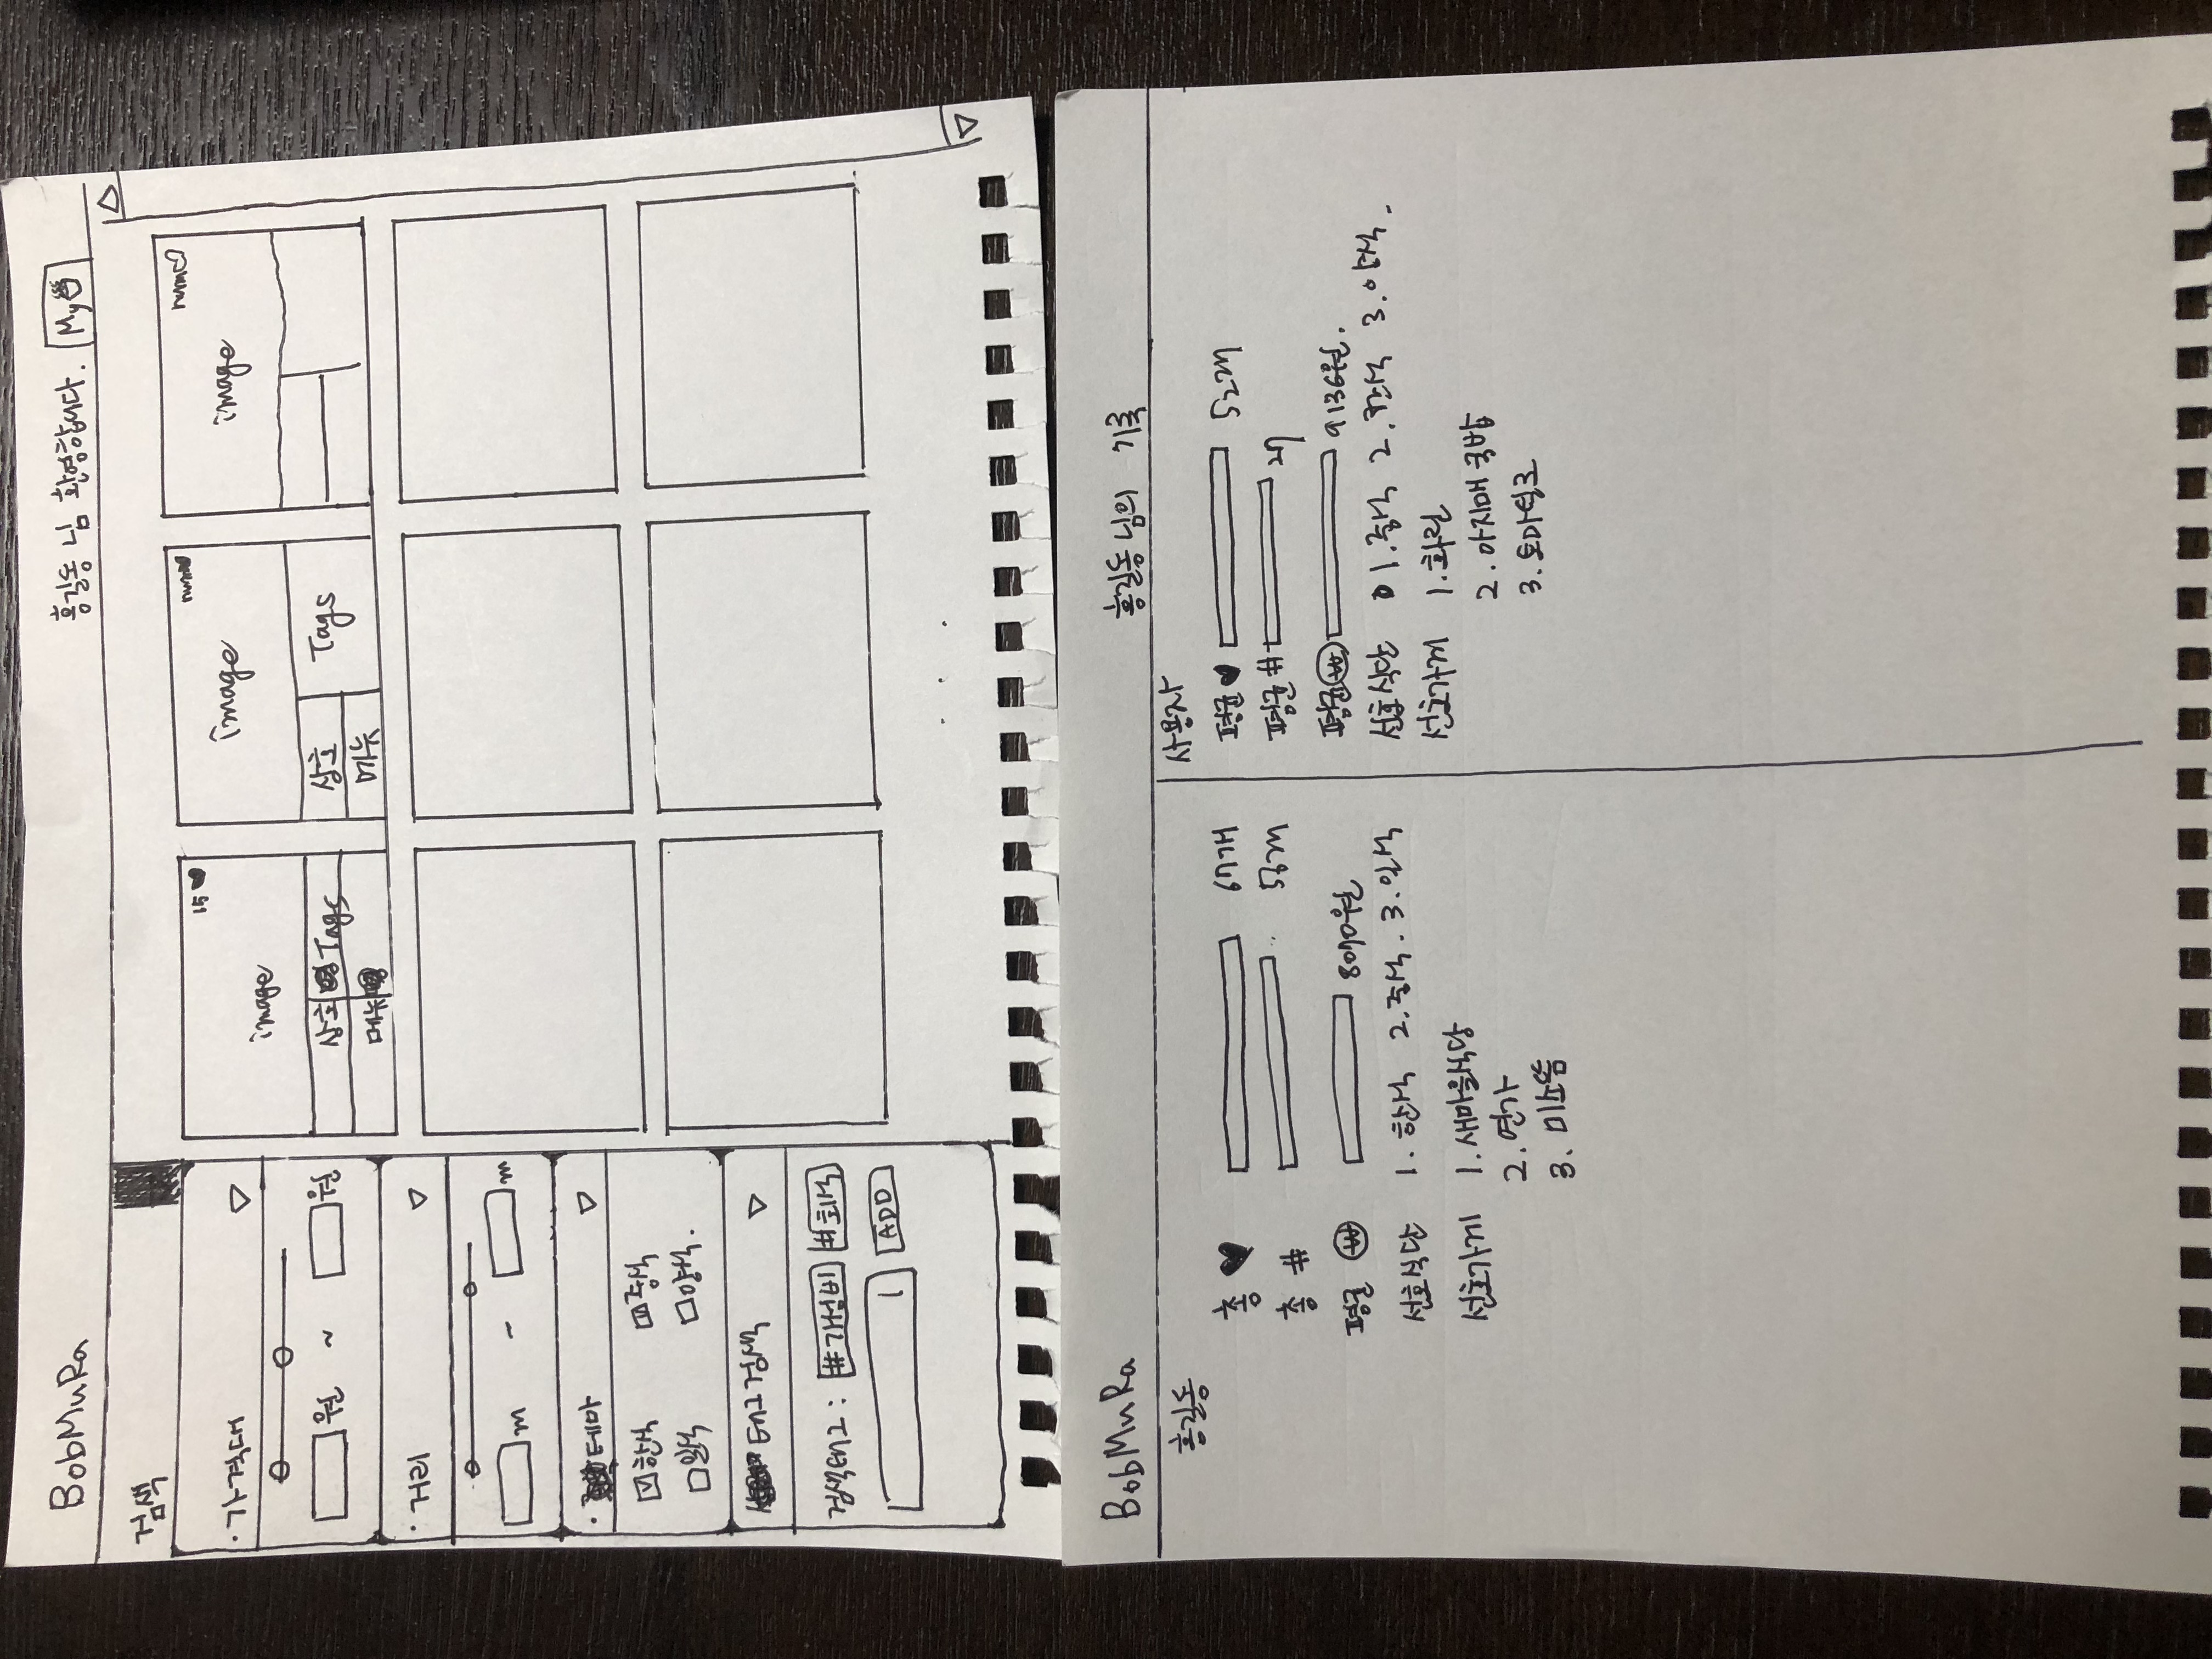 BobMuRa
홍길동 님 환영합니다. My
검색
· 가격대
원 ~ 원
· 거리
m ~ m
· 테마
한식 중식
일식 양식.
태그검색
검색태그 : #가성비 #회식
ADD
15♥
image
상호 Tags
메뉴
num♥
image
상호 Tags
메뉴
num♡
image
. . .
BobMuRa
홍길동 님의 기록
홍길동
총 ♥ 67개
총 # 56개
평균 ₩ 8070원
선호식단 1. 한식 2. 중식. 3. 일식
선호가게 1. 새마을식당
2. 연가
3. 미소뜸
사용자
평균 ♥ 52개
평균 # 27
평균 ₩ 9136원.
선호식단 1. 중식 2. 한식 3. 양식.
선호가게 1. 화린
2. 아지매 국밥
3. 토마틸로